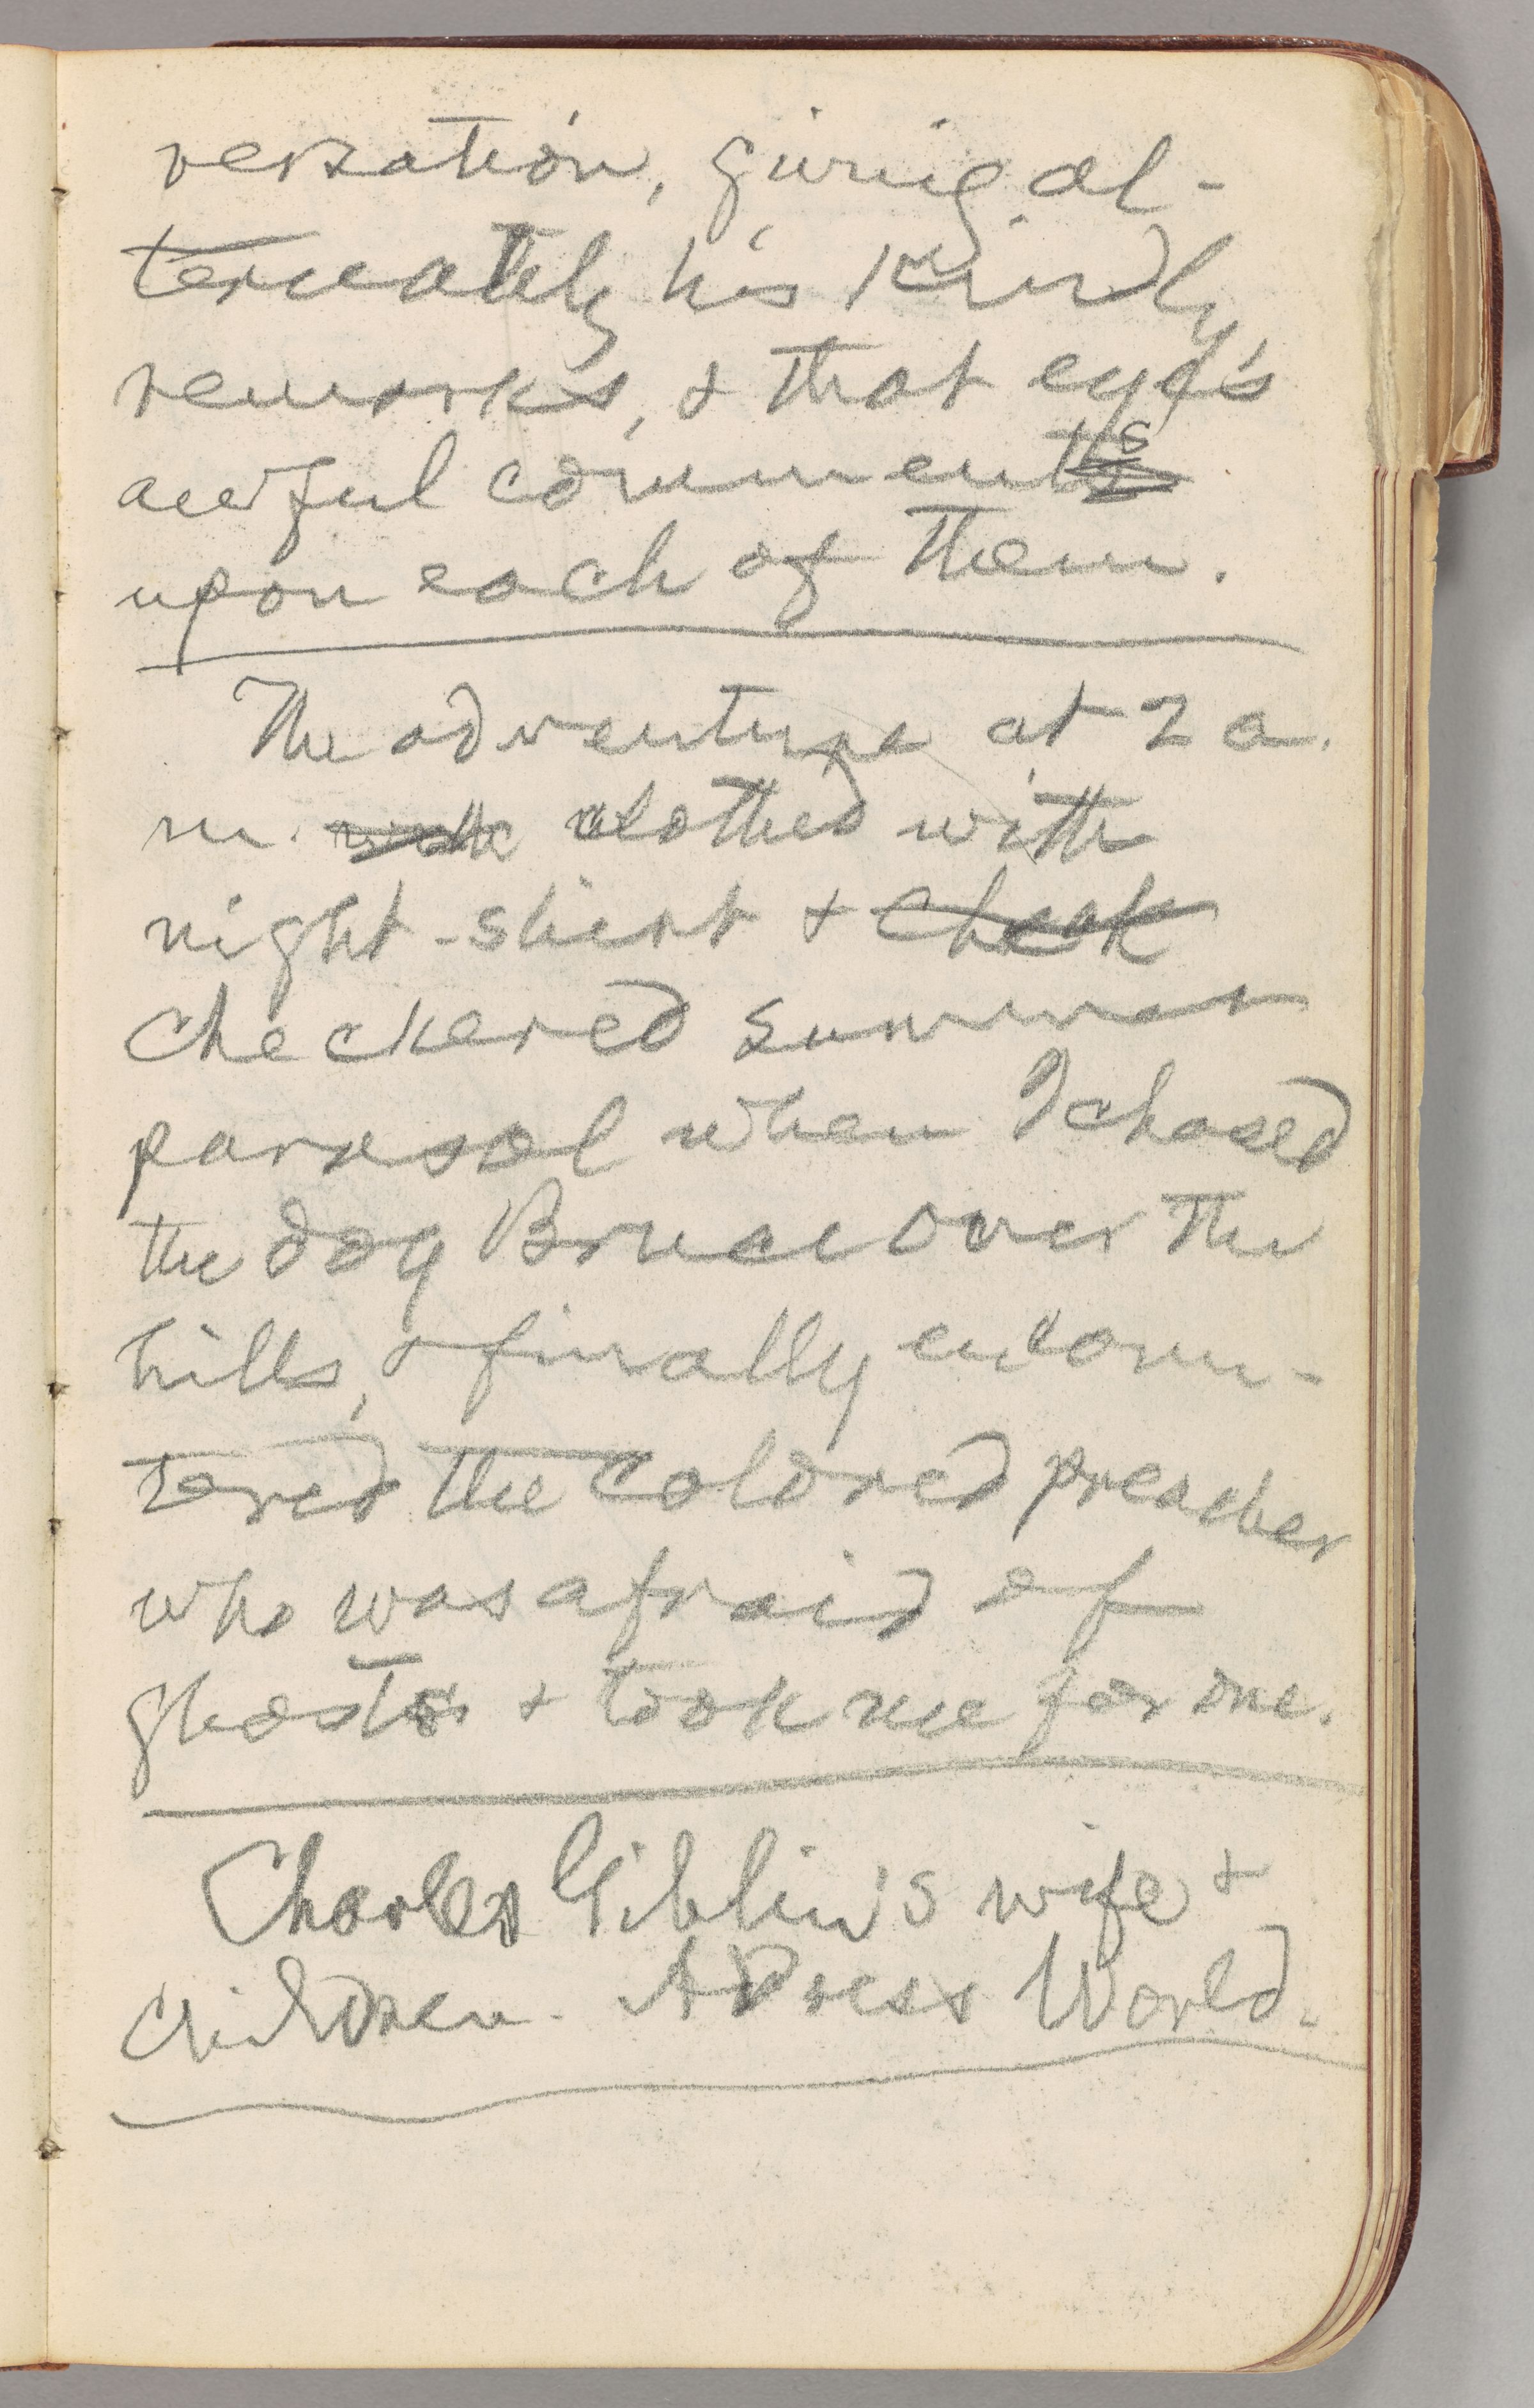 versation, giving al-
ternately his kindly
remarks, & that eye's
awful comments
upon each of them.
The adventure at 2 a.
m. with clothed with
night-shirt & check
checkered summer
parasol when I chased
the dog Bruce over the
hills, & finally encoun-
tered the colored preacher
who was afraid of
ghosts & took me for one.
Charles Giblin's wife &
children. Address World.